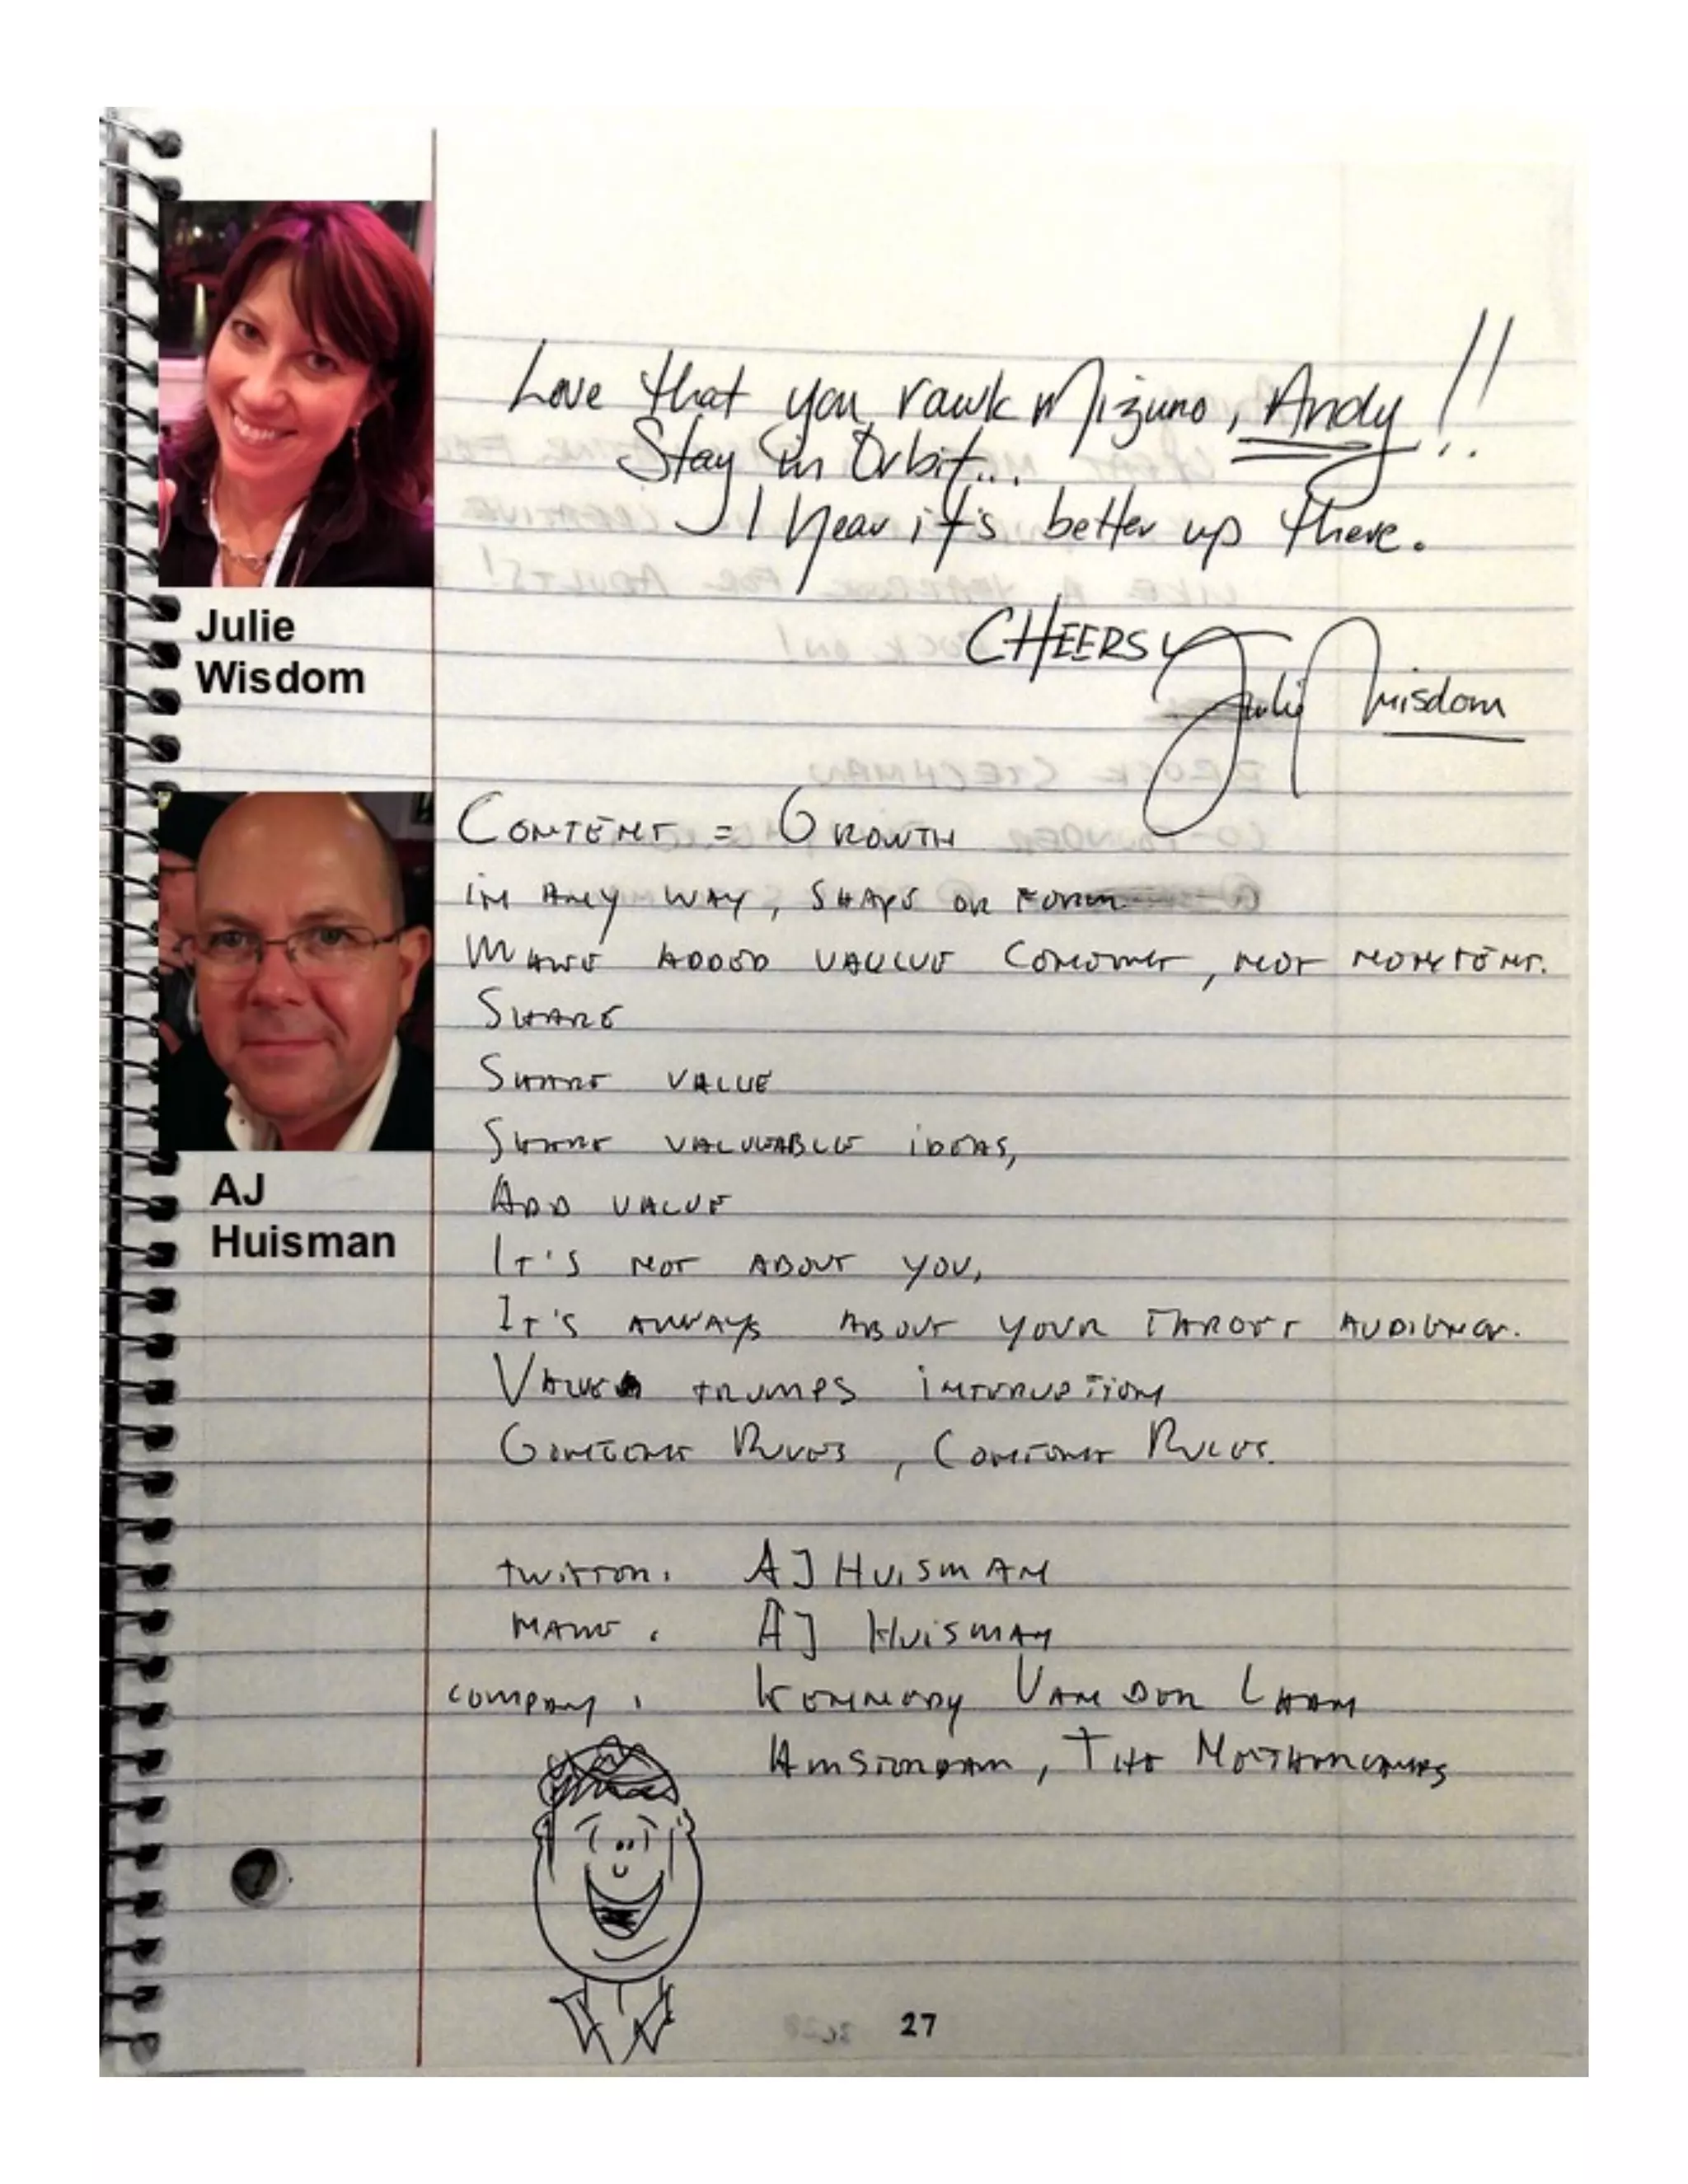 Love that you rawk Mizuno, Andy!!
Stay in Orbit...
I hear it's better up there.
CHEERS,
Julie Wisdom
Julie
Wisdom
CONTENT = GROWTH
IN ANY WAY, SHAPE OR FORM
MAKE ADDED VALUE CONTENT, NOT NONTENT.
SHARE
SHARE VALUE
SHARE VALUEABLE IDEAS,
ADD VALUE
IT'S NOT ABOUT YOU,
IT'S ALWAYS ABOUT YOUR TARGET AUDIENCE.
VALUE TRUMPS INTERUPTION
CONTENT RULES, CONTENT RULES.
AJ
Huisman
TWITTER: AJHUISMAN
NAME: AJ HUISMAN
COMPANY: KENNEDY VAN DER LAAN
AMSTERDAM, THE NETHERLANDS
27